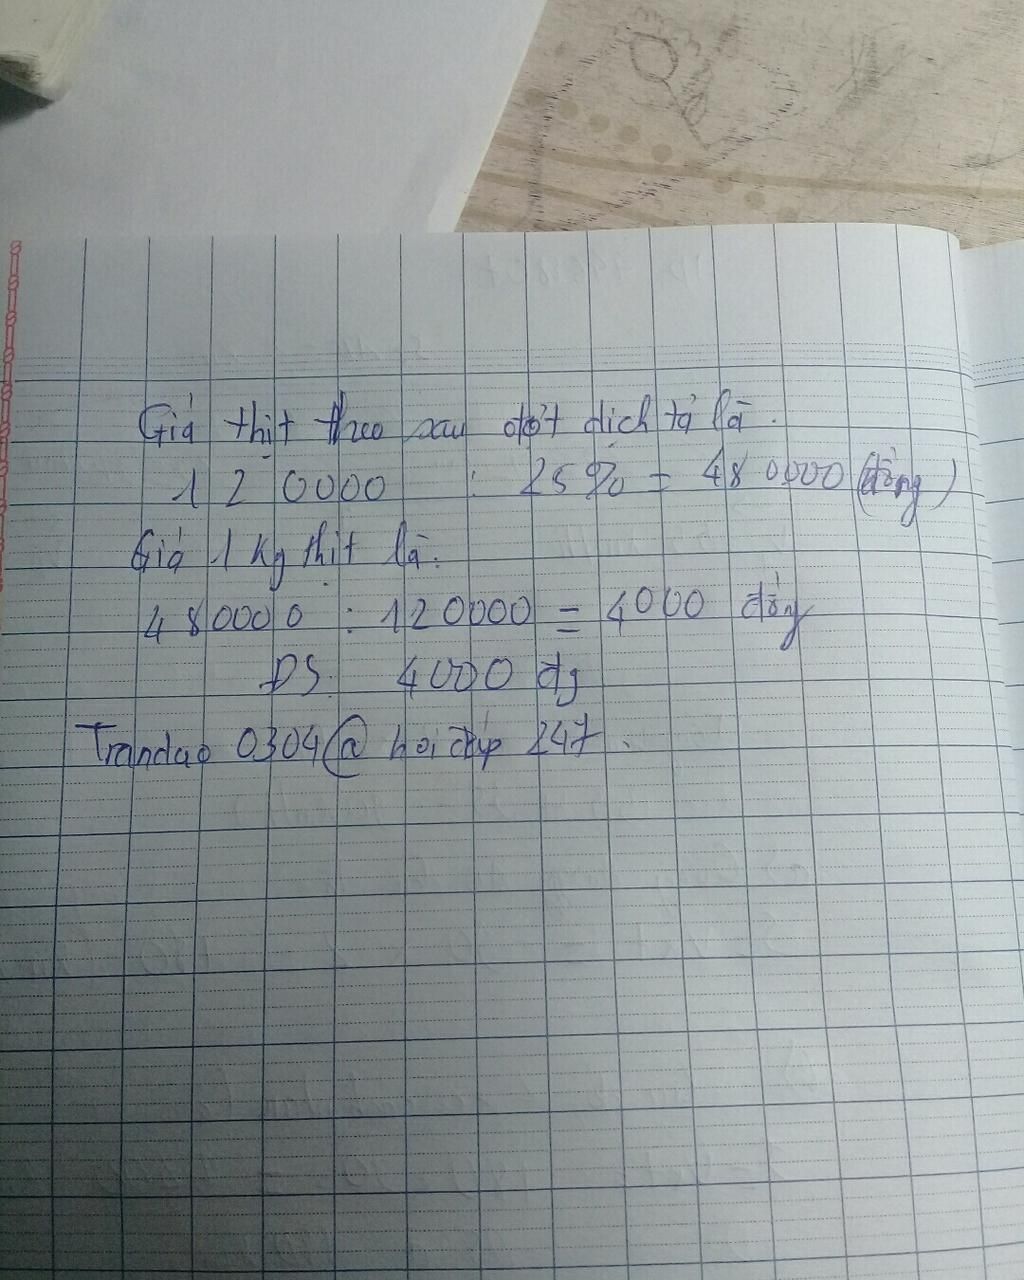 Giá thịt theo sau đợt dịch tả là.
120000 : 25% = 480000 (đồng)
Giá 1 kg thịt là:
480000 : 120000 = 4000 đồng
ĐS: 4000 đg
Trandao 0304@ hỏi đáp 247.